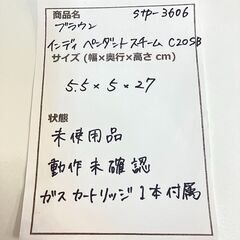 商品名 stp-3606
ブラウン
インディペンダントスチーム C20SB
サイズ (幅×奥行×高さ cm)
5.5×5×27
状態
未使用品
動作未確認
ガスカートリッジ1本付属